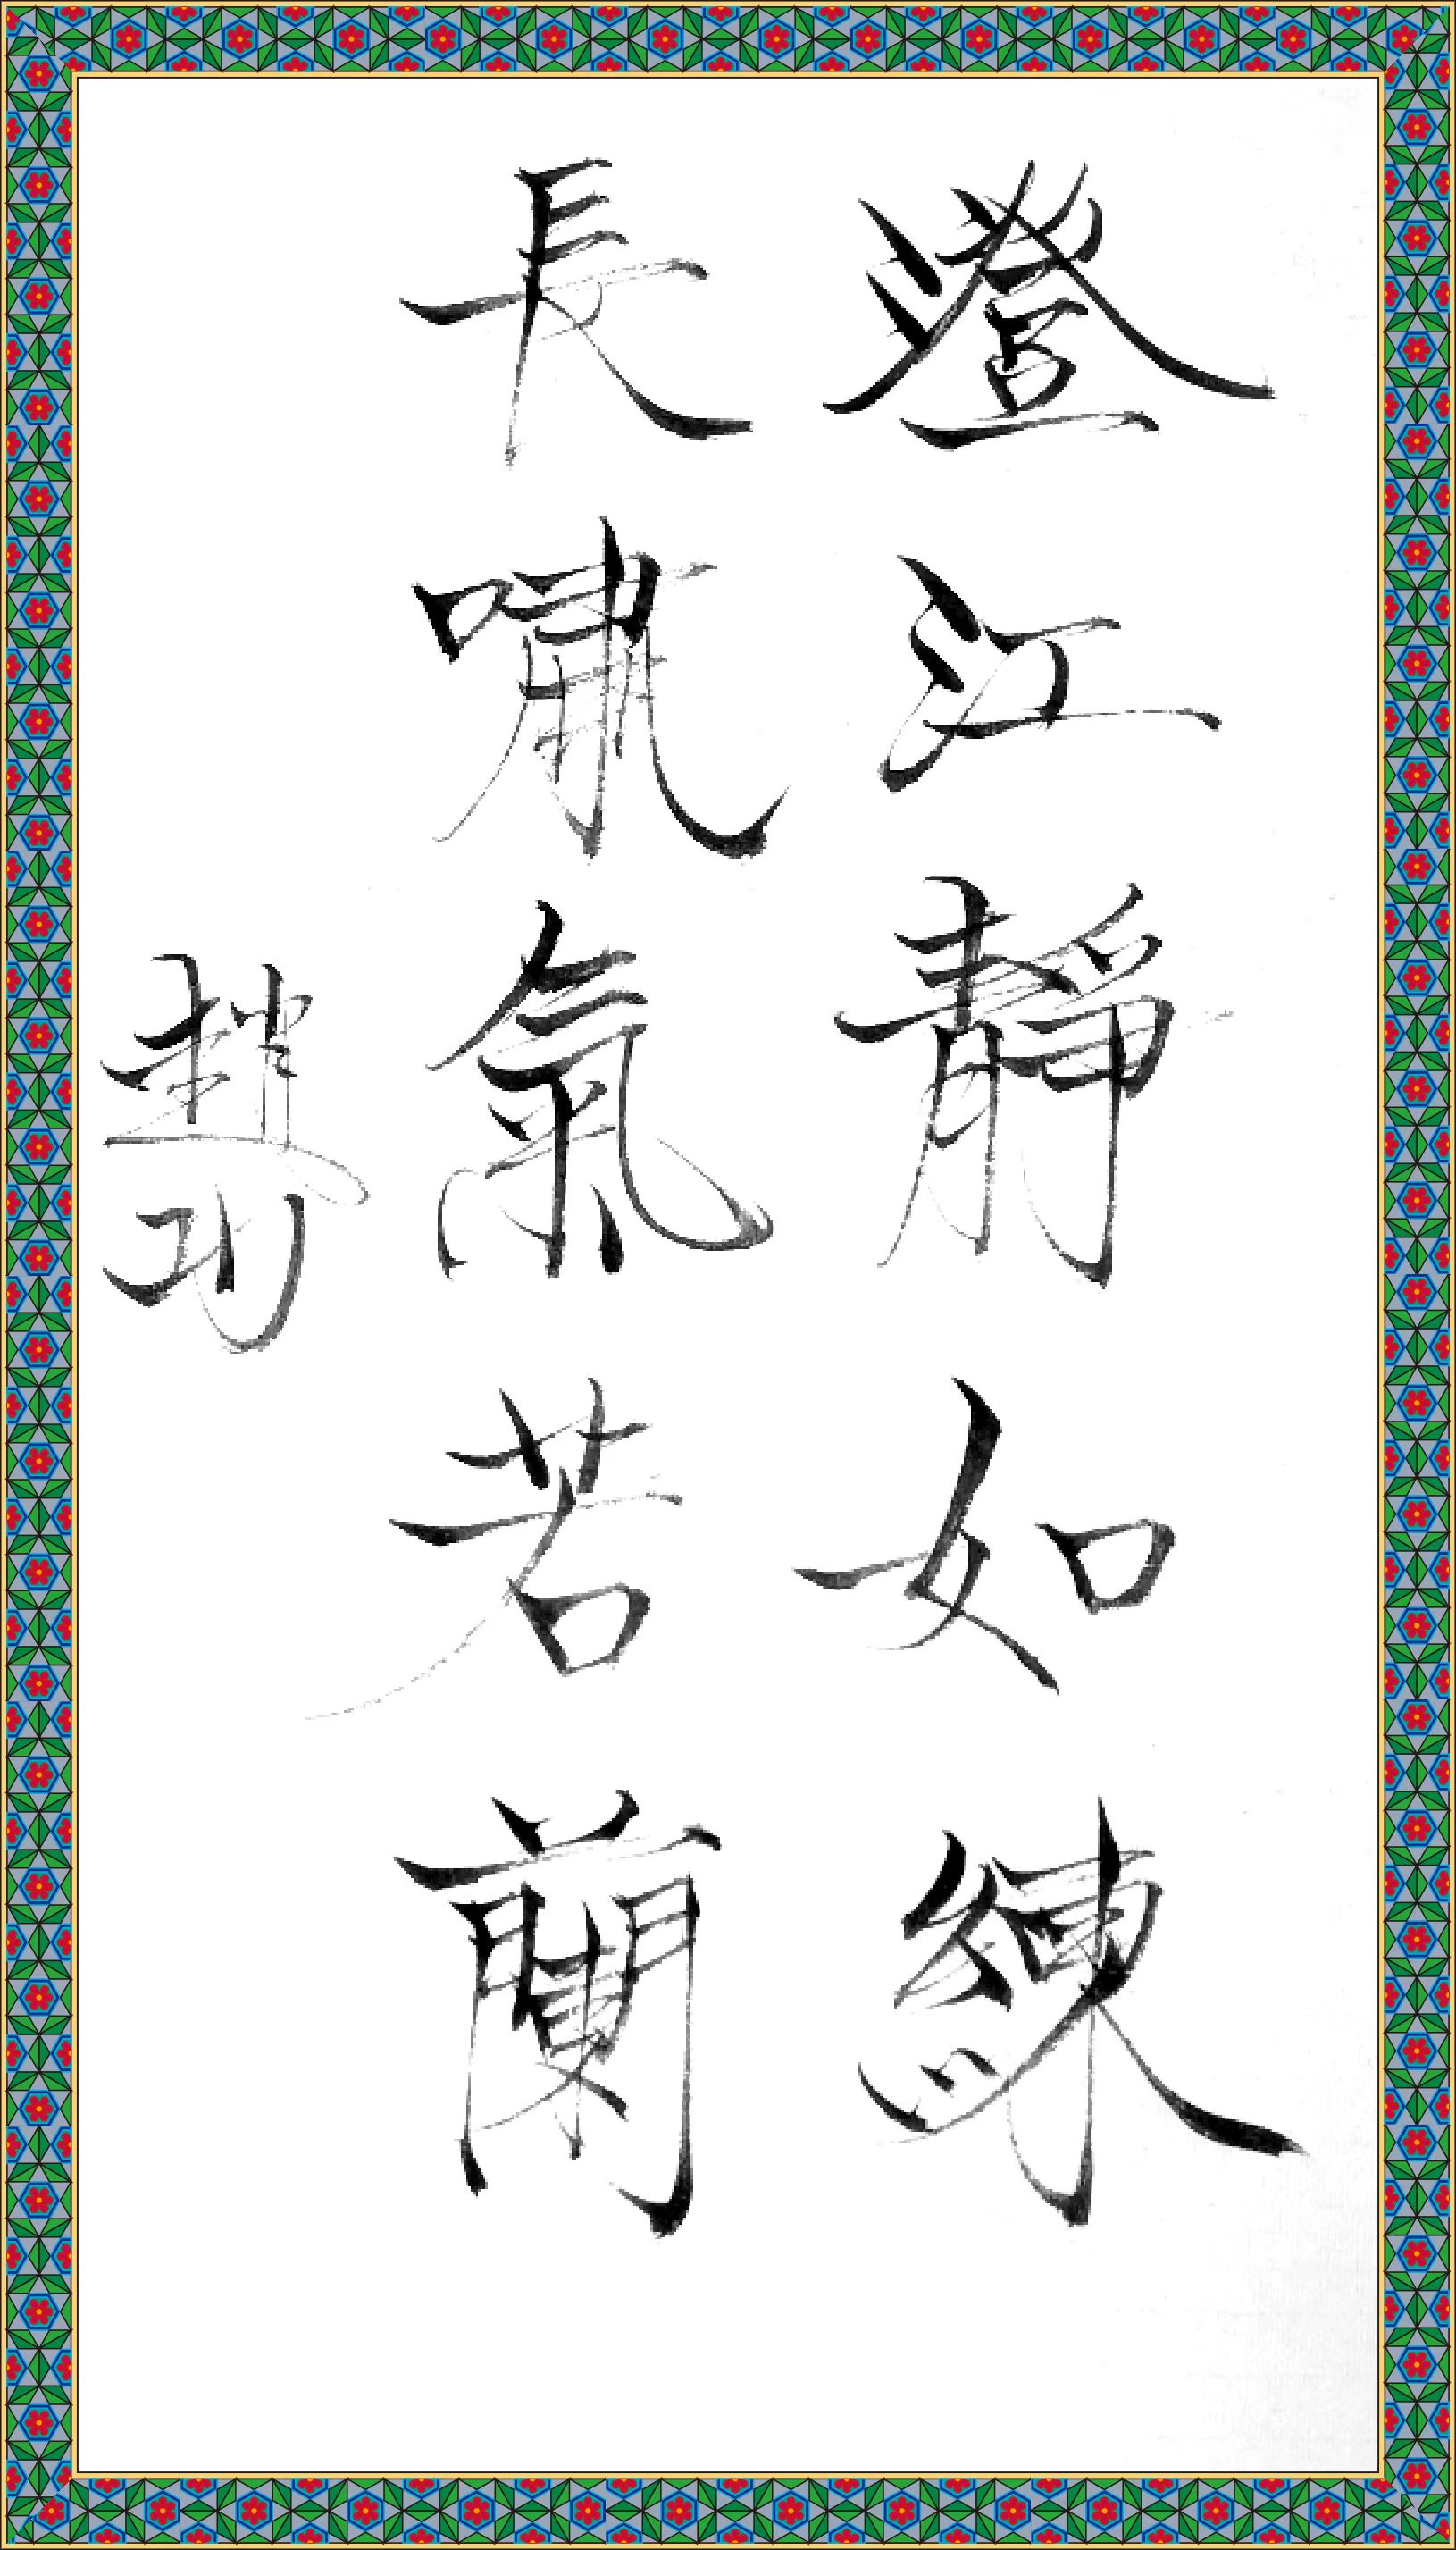 澄江靜如練
長嘯氣若蘭
趙功